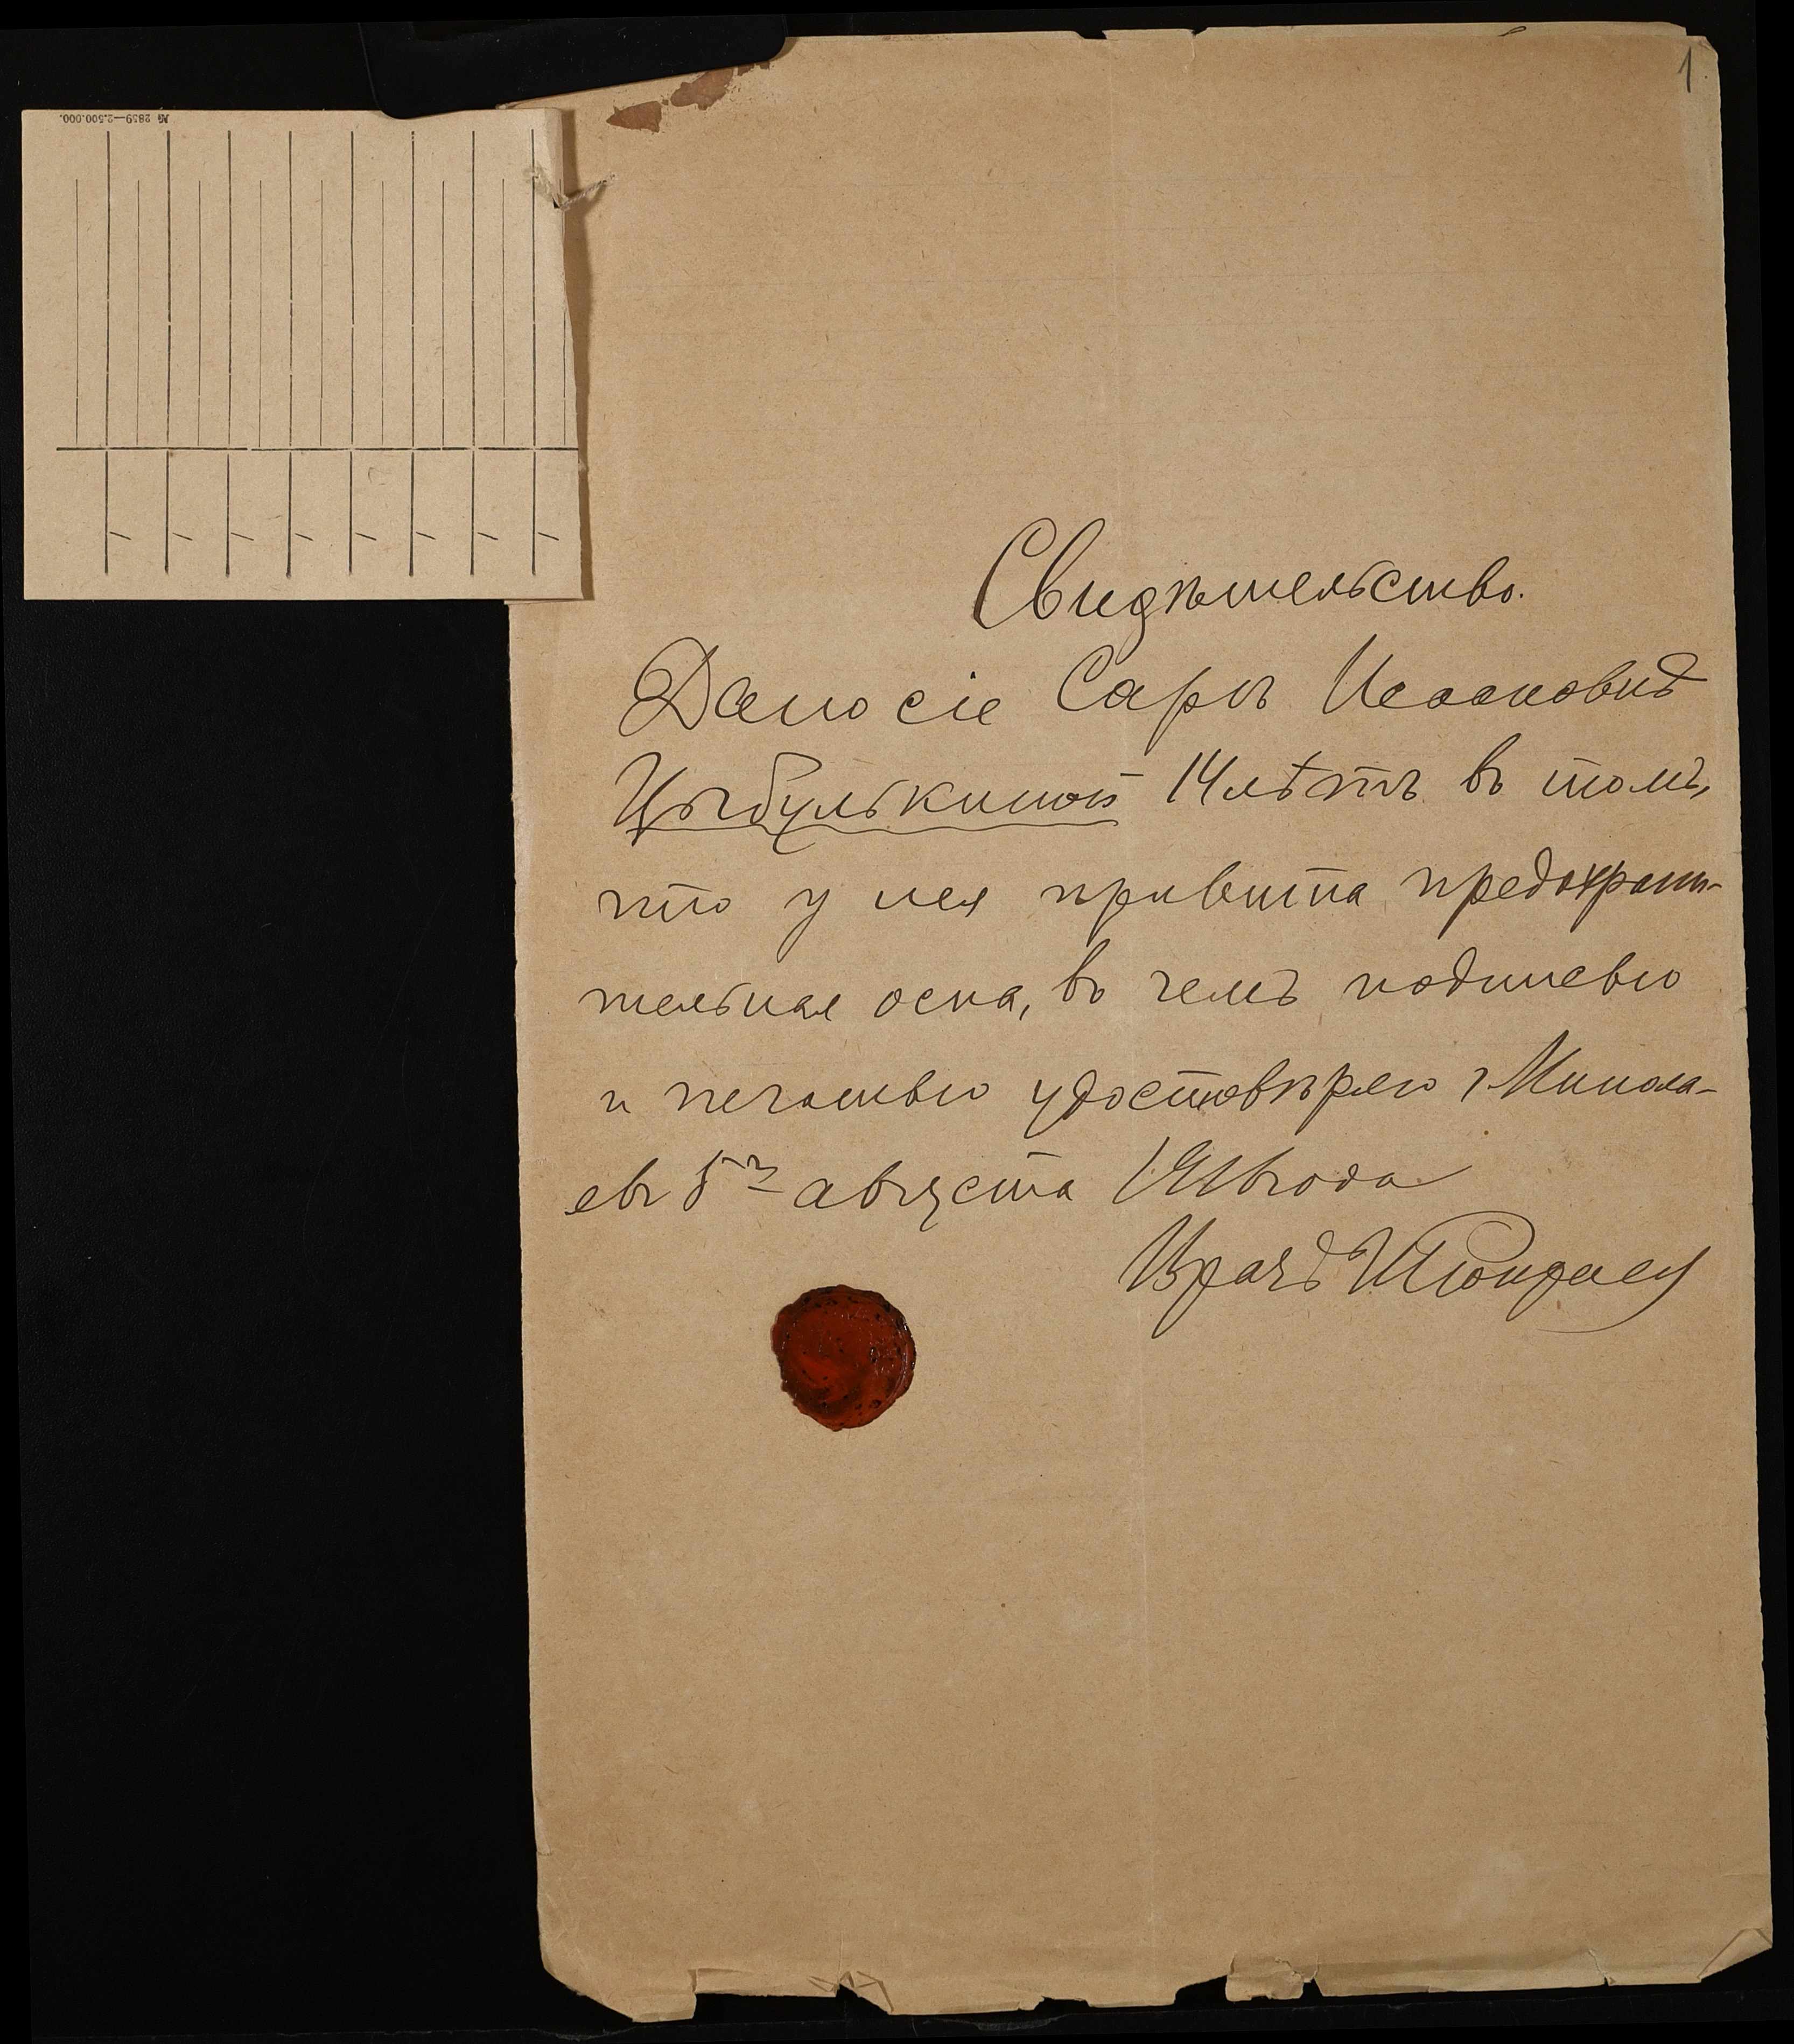 1
№ 2839—2.500.000.
Свидѣтельство.
Дано сіе Сарѣ Исааковнѣ
Цыбулькиной 14 лѣтъ въ томъ,
что у нея привита предохрани-
тельная оспа, въ чемъ подписью
и печатью удостовѣряю г. Никола-
евъ 5го августа года
Врачъ